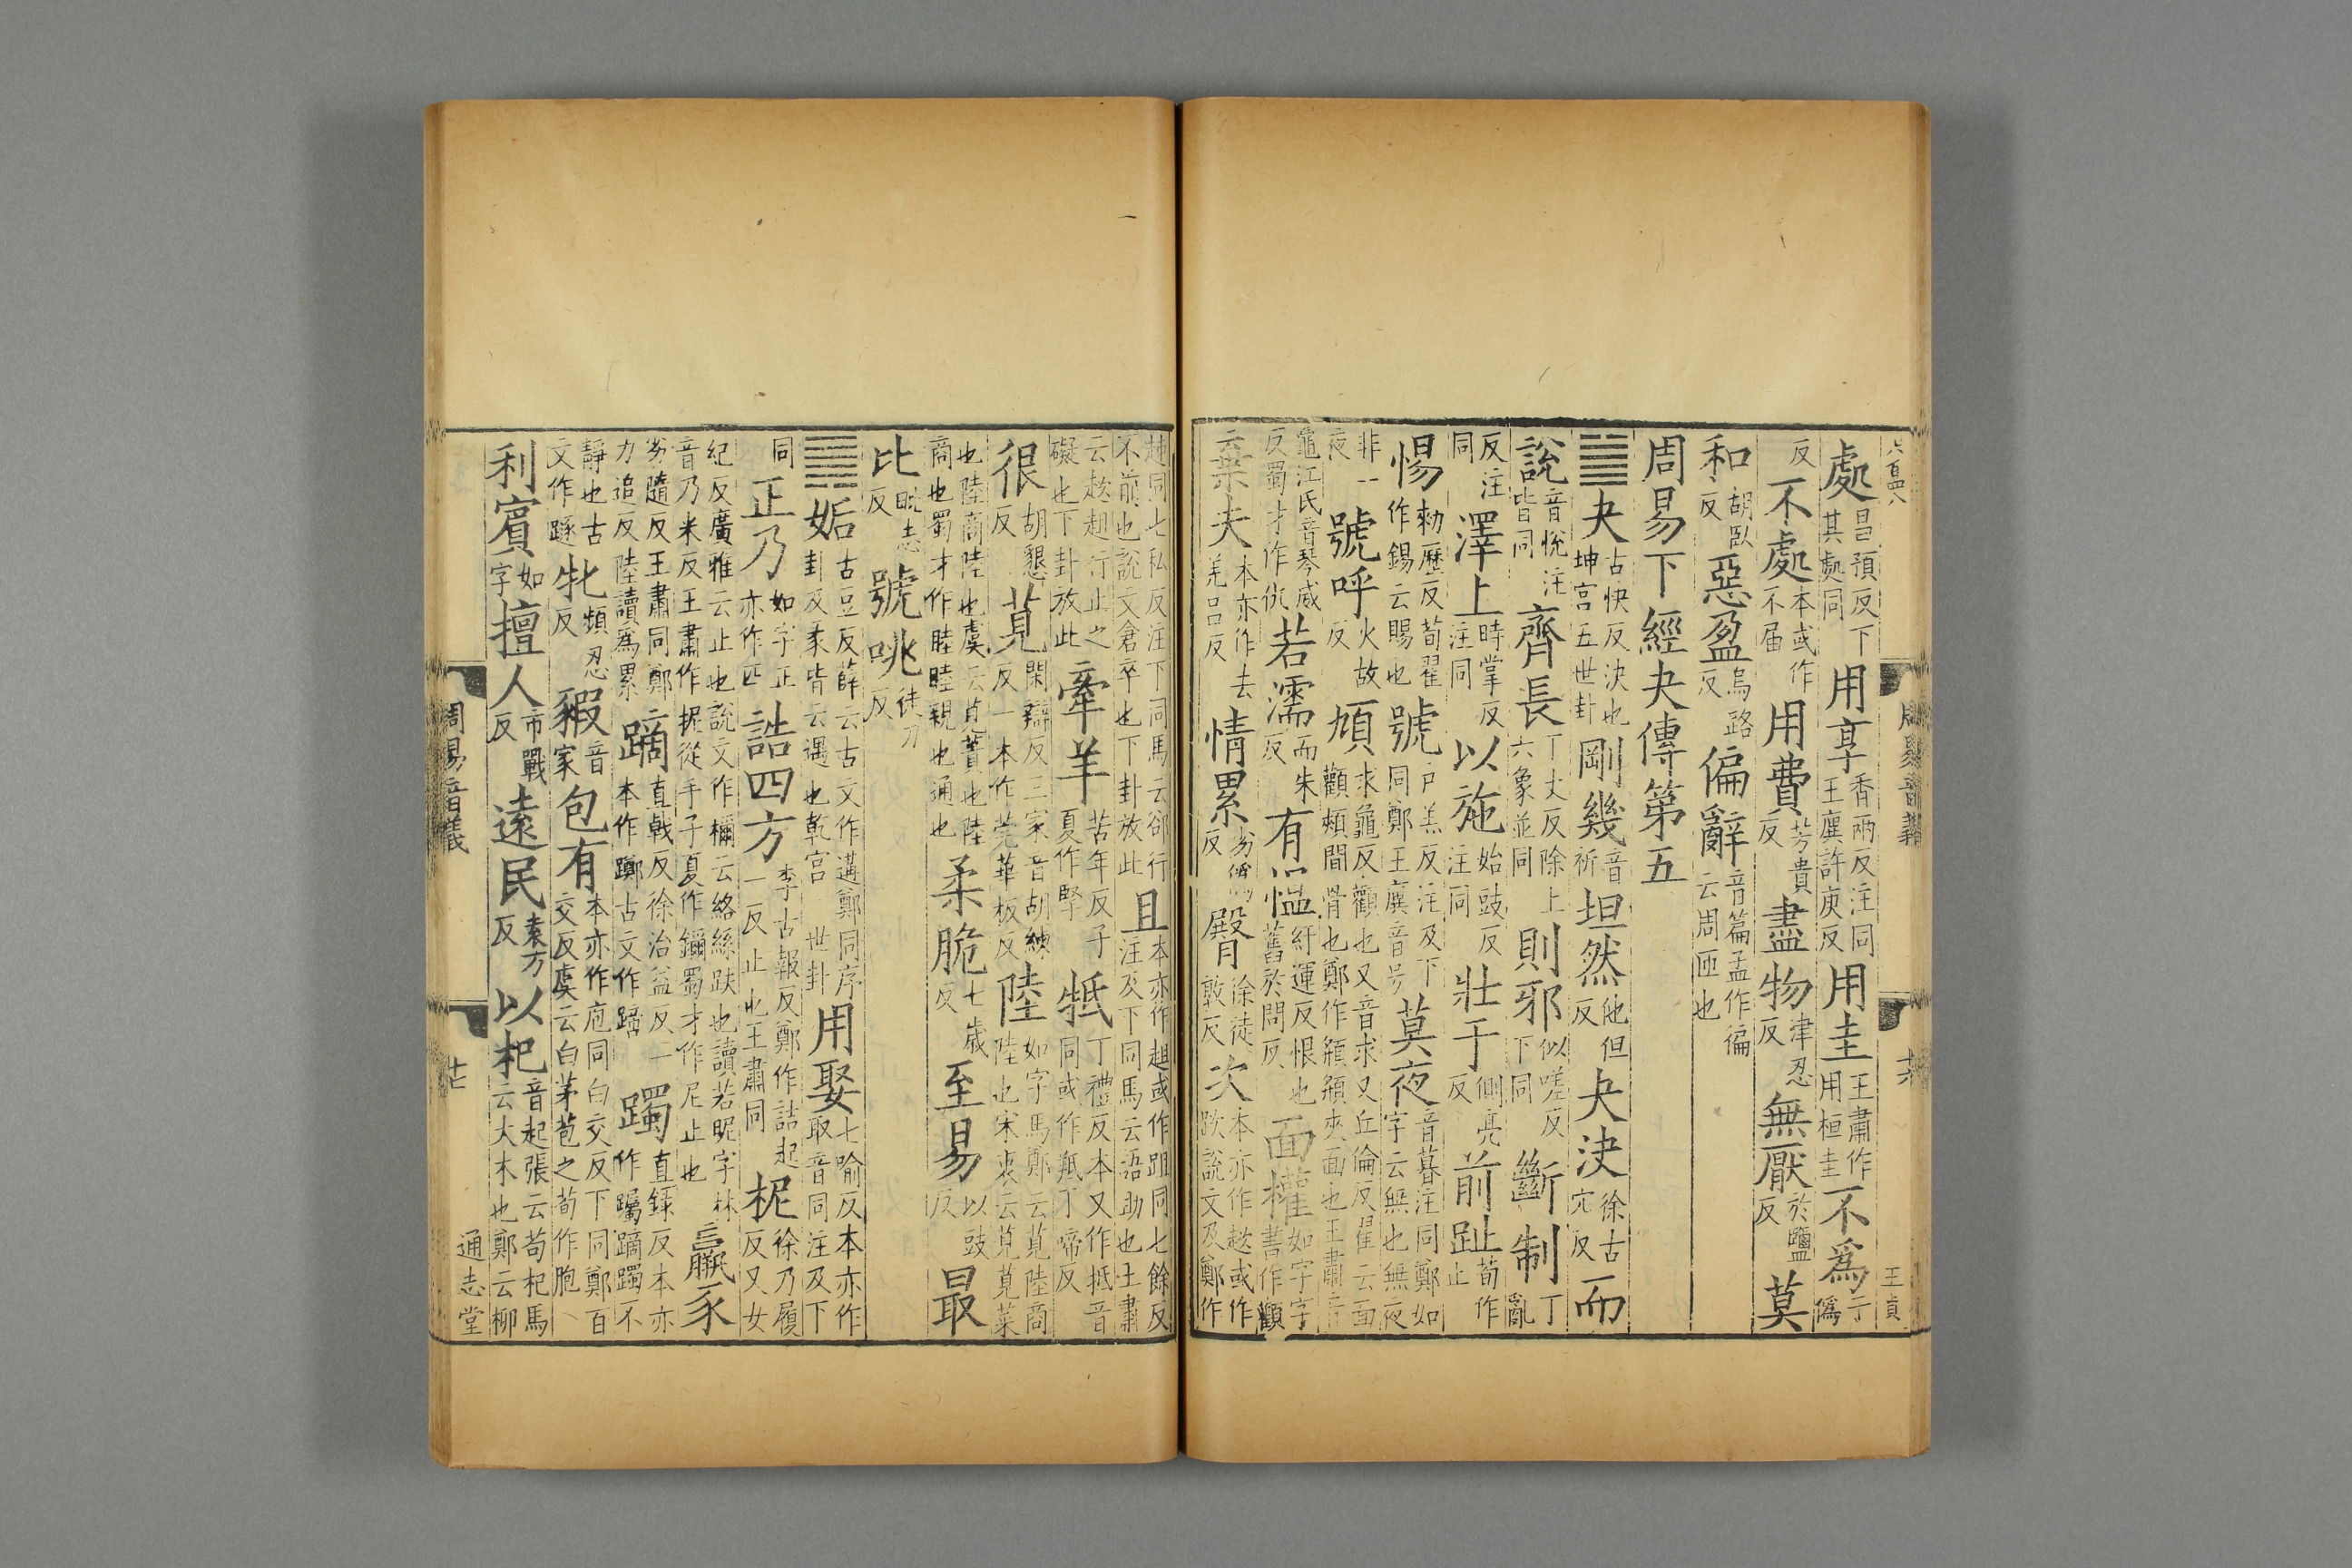 六百四八
周易音義
十六
王貞
處昌預反下其處同用享香兩反注同王廙許庚反用圭王肅作用桓圭不爲于僞
反不處本或作不届用費芳貴反盡物津忍反無厭於鹽反莫
和胡臥反惡盈烏路反偏辭音篇孟作徧云周匝也
周易下經夬傳第五
䷪夬古快反決也坤宮五世卦剛幾音祈坦然他但反夬決徐古穴反而
說音悅注皆同齊長丁丈反除上六象並同則邪似嗟反下同斷制丁亂
反注同澤上時掌反注同以施始豉反注同壯于側亮反前趾荀作止
惕勑歷反荀翟作錫云賜也號戶羔反注及下同鄭王廙音号莫夜音暮注同鄭如字云無也無夜
非一夜號呼火故反頄求龜反顴也又音求又丘倫反翟云面顴頰間骨也鄭作頯頯夾面也王肅音
龜江氏音琴威反蜀才作仇若濡而朱反有慍紆運反恨也舊於問反面權如字字書作顴
棄夫本亦作去羌呂反情累劣僞反臀徐徒敦反次本亦作趑或作跌說文及鄭作
趀同七私反注下同馬云卻行不前也說文倉卒也下卦放此且本亦作趄或作跙同七餘反注及下同馬云語助也王肅
云趑趄行止之礙也下卦放此牽羊苦年反子夏作掔牴丁禮反本又作抵音同或作羝丁啼反
很胡懇反莧閑辯反三家音胡練反一本作莞華板反陸如字馬鄭云莧陸商陸也宋衷云莧莧菜
也陸商陸也虞云莧蕢也陸商也蜀才作睦睦親也通也柔脆七歲反至易以豉反最
比毗志反號咷徒刀反
䷫姤古豆反薛云古文作遘鄭同序卦及彖皆云遇也乾宮世卦用娶七喻反本亦作取音同注及下
同正乃如字正亦作匹誥四方李古報反鄭作詰起一反止也王肅同柅徐乃履反又女
紀反廣雅云止也說文作檷云絡絲趺也讀若昵字林音乃米反王肅作抳從手子夏作鑈蜀才作尼止也羸豕
劣隨反王肅同鄭力追反陸讀爲累蹢直戟反徐治益反一本作躑古文作蹢躅直錄反本亦作䠱蹢躅不
靜也古文作𨅖牝頻忍反豭音家包有本亦作庖同白交反下同鄭百交反虞云白茅苞之荀作胞
利賓如字擅人市戰反遠民袁万反以杞音起張云苟杞馬云大木也鄭云柳
周易音義
十七
通志堂